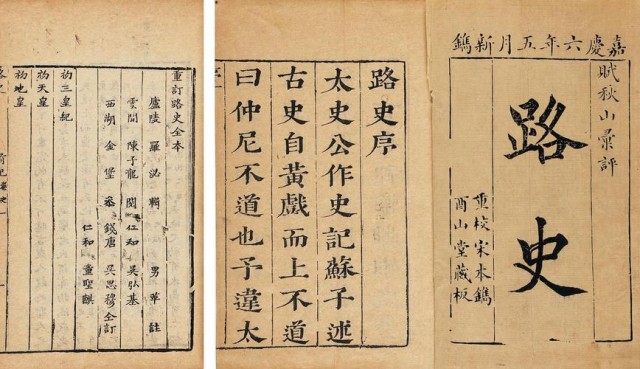 嘉慶六年五月新鐫
賦秋山彙評
路史
重校宋本鐫
酉山堂藏板
路史序
太史公作史記蘇子述
古史自黃戲而上不道
曰仲尼不道也予違太
重訂路史全本
廬陵 羅泌輯 男苹註
雲間 陳子龍閱 仁和 吳弘基
西湖 金堡叅 錢唐 吳思穆仝訂
仁和
初三皇紀
初天皇
初地皇